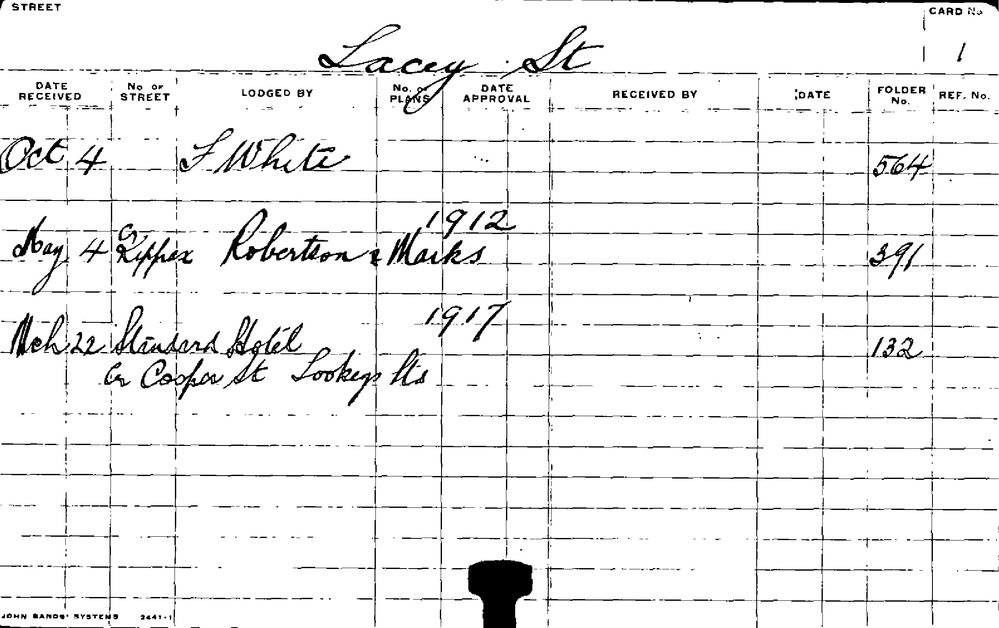 STREET
CARD No
Lacey St
1
DATE RECEIVED No OF STREET LODGED BY No. OF PLANS DATE APPROVAL RECEIVED BY DATE FOLDER No. REF. No.
Oct 4 F White 564
1912
May 4 Cr Kippax Robertson & Marks 391
1917
Mch 22 Standard Hotel 132
Cr Cooper St Tookeys
JOHN SANDS' SYSTEMS 2441-1